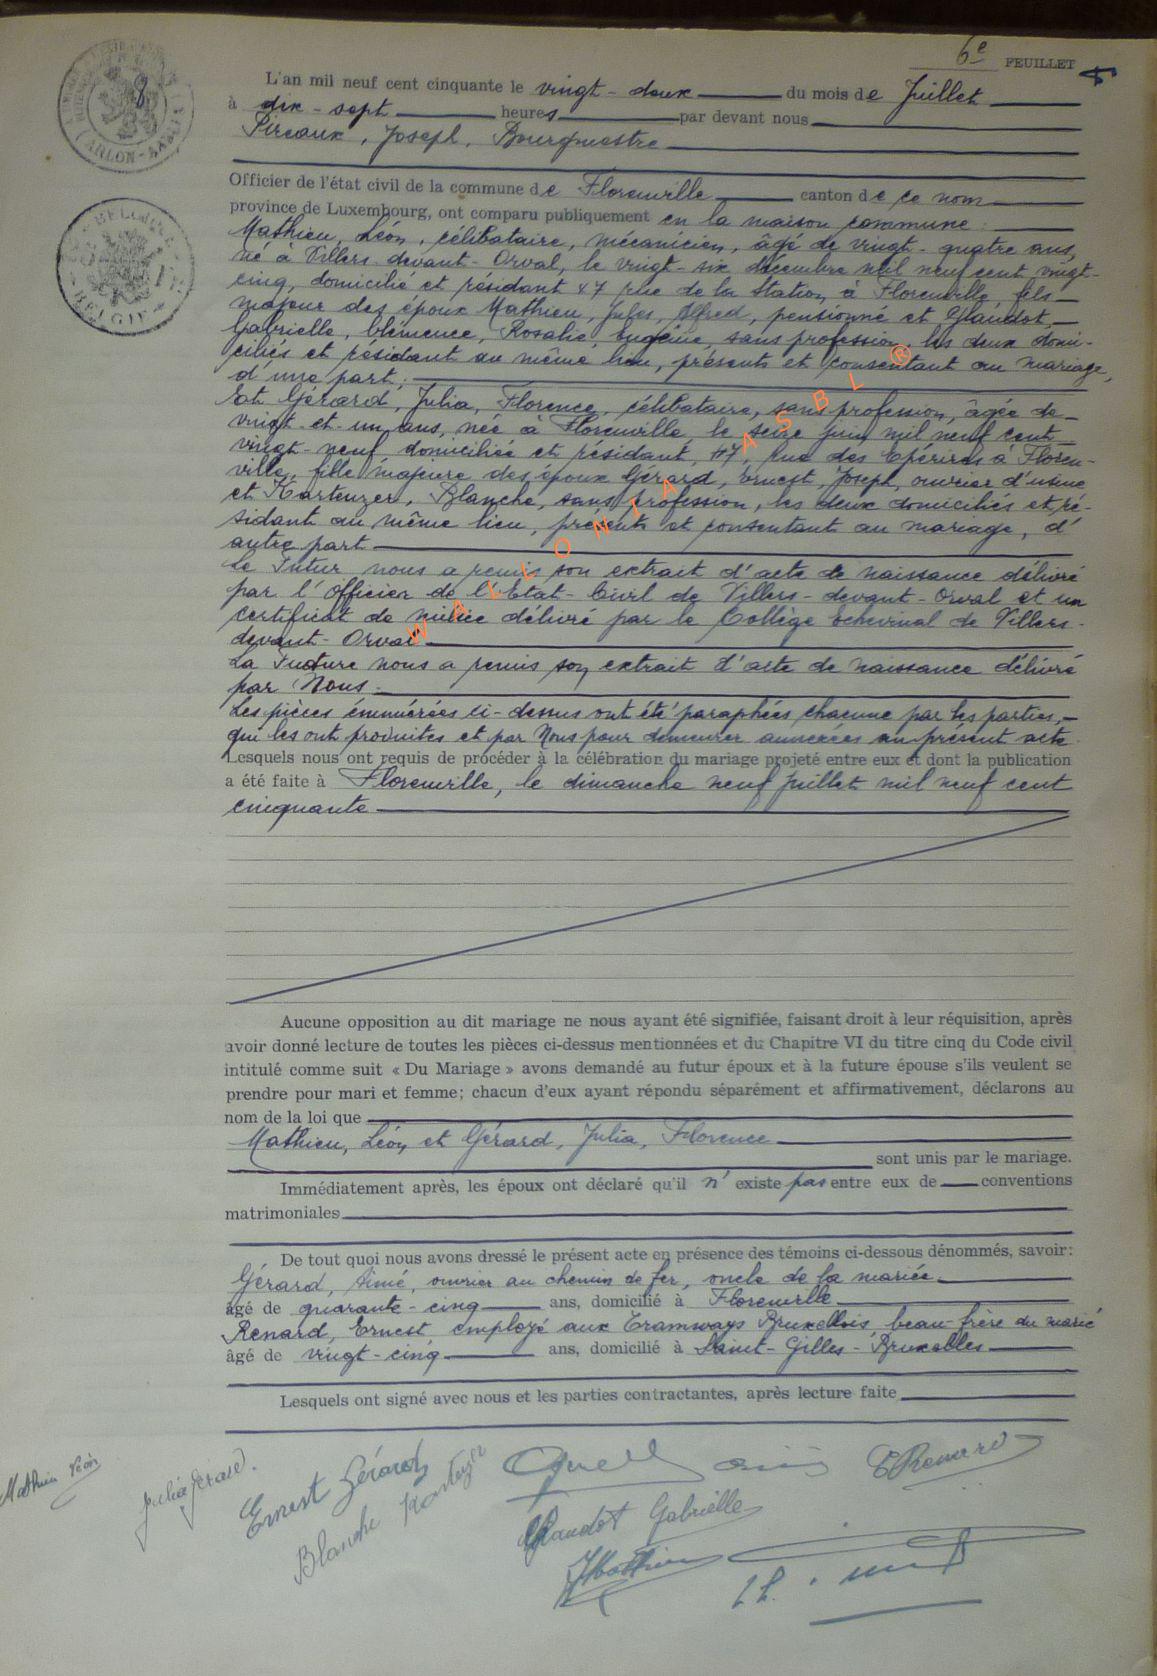 6e FEUILLET
8
L'an mil neuf cent cinquante le vingt-deux du mois de Juillet
à dix-sept heures par devant nous
Pireaux, Joseph, Bourgmestre
ARLON
BELGIQUE
BELGIË
Officier de l'état civil de la commune de Florenville canton de ce nom
province de Luxembourg, ont comparu publiquement en la maison commune :
Mathieu, Léon, célibataire, mécanicien, âgé de vingt-quatre ans,
né à Villers-devant-Orval, le vingt-six décembre mil neuf cent vingt-
cinq, domicilié et résidant 47 rue de la Station, à Florenville, fils
majeur des époux Mathieu, Jules, Alfred, pensionné et Glaudot,
Gabrielle, Clémence, Rosalie, Eugénie, sans profession, les deux domi-
ciliés et résidant au même lieu, présents et consentant au mariage,
d'une part;
Et Gérard, Julia, Florence, célibataire, sans profession, âgée de
vingt-et-un ans, née à Florenville le seize juin mil neuf cent
vingt-neuf, domiciliée et résidant, 47, rue des Epérires à Floren-
ville, fille majeure des époux Gérard, Ernest, Joseph, ouvrier d'usine
et Kartenzer, Blanche, sans profession, les deux domiciliés et ré-
sidant au même lieu, présents et consentant au mariage, d'
autre part
Le Futur nous a remis son extrait d'acte de naissance délivré
par l'Officier de l'Etat-Civil de Villers-devant-Orval et un
certificat de milice délivré par le Collège Echevinal de Villers-
devant-Orval
La Future nous a remis son extrait d'acte de naissance délivré
par Nous.
Les pièces énumérées ci-dessus ont été paraphées chacune par les parties,
qui les ont produites et par Nous pour demeurer annexées au présent acte.
Lesquels nous ont requis de procéder à la célébration du mariage projeté entre eux et dont la publication
a été faite à Florenville, le dimanche neuf juillet mil neuf cent
cinquante
WALLONIA ASBL ®
Aucune opposition au dit mariage ne nous ayant été signifiée, faisant droit à leur réquisition, après
avoir donné lecture de toutes les pièces ci-dessus mentionnées et du Chapitre VI du titre cinq du Code civil
intitulé comme suit « Du Mariage » avons demandé au futur époux et à la future épouse s'ils veulent se
prendre pour mari et femme; chacun d'eux ayant répondu séparément et affirmativement, déclarons au
nom de la loi que
Mathieu, Léon et Gérard, Julia, Florence
sont unis par le mariage.
Immédiatement après, les époux ont déclaré qu'il n' existe pas entre eux de conventions
matrimoniales
De tout quoi nous avons dressé le présent acte en présence des témoins ci-dessous dénommés, savoir:
Gérard, Aimé, ouvrier au chemin de fer, oncle de la mariée
âgé de quarante-cinq ans, domicilié à Florenville
Renard, Ernest employé aux Tramways Bruxellois, beau-frère du marié
âgé de vingt-cinq ans, domicilié à Saint-Gilles-Bruxelles
Lesquels ont signé avec nous et les parties contractantes, après lecture faite
Mathieu Léon
Julia Gérard.
Ernest Gérard
Blanche Kartenzer
E Renard
Glaudot Gabrielle
J Mathieu